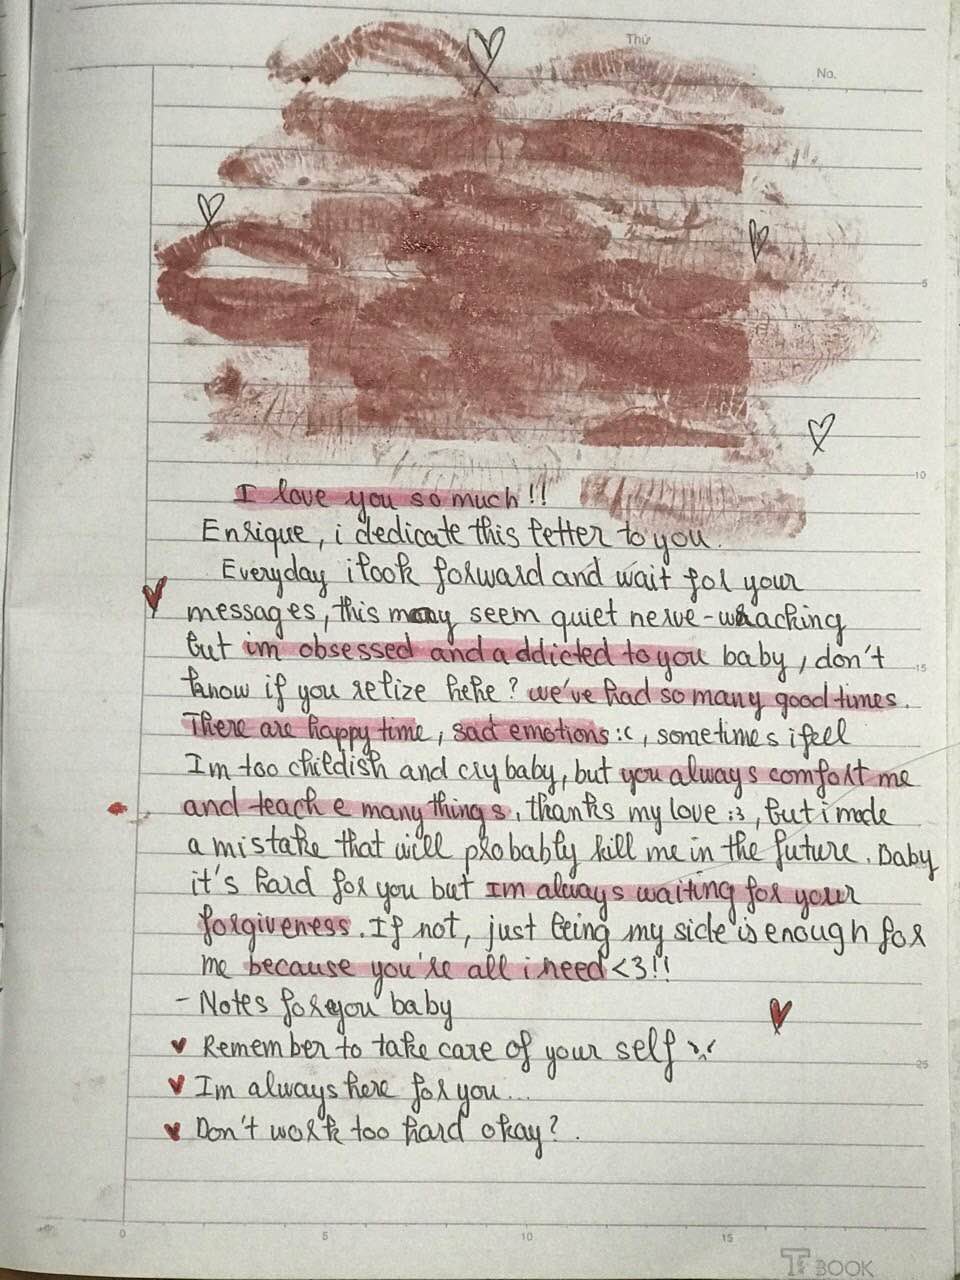 Thứ
No.
I love you so much!!
Enrique, i dedicate this letter to you.
Everyday i look forward and wait for your
messages, this may seem quiet nerve-wraching
but im obsessed and addicted to you baby, don't
know if you relize hehe? we've had so many good times.
There are happy time, sad emotions :c, sometimes i feel
Im too childish and cry baby, but you always comfort me
and teach e many things, thanks my love :3, but i made
a mistake that will probably kill me in the future. Baby
it's hard for you but Im always waiting for your
forgiveness. If not, just being my side is enough for
me because you're all i need <3!!
- Notes for you baby
♥ Remember to take care of your self
♥ Im always here for you...
♥ Don't work too hard okay?.
5
10
15
25
0 5 10 15
BOOK